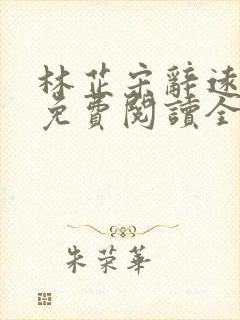 林芷宋辭遠
免費閱讀全
朱荣華